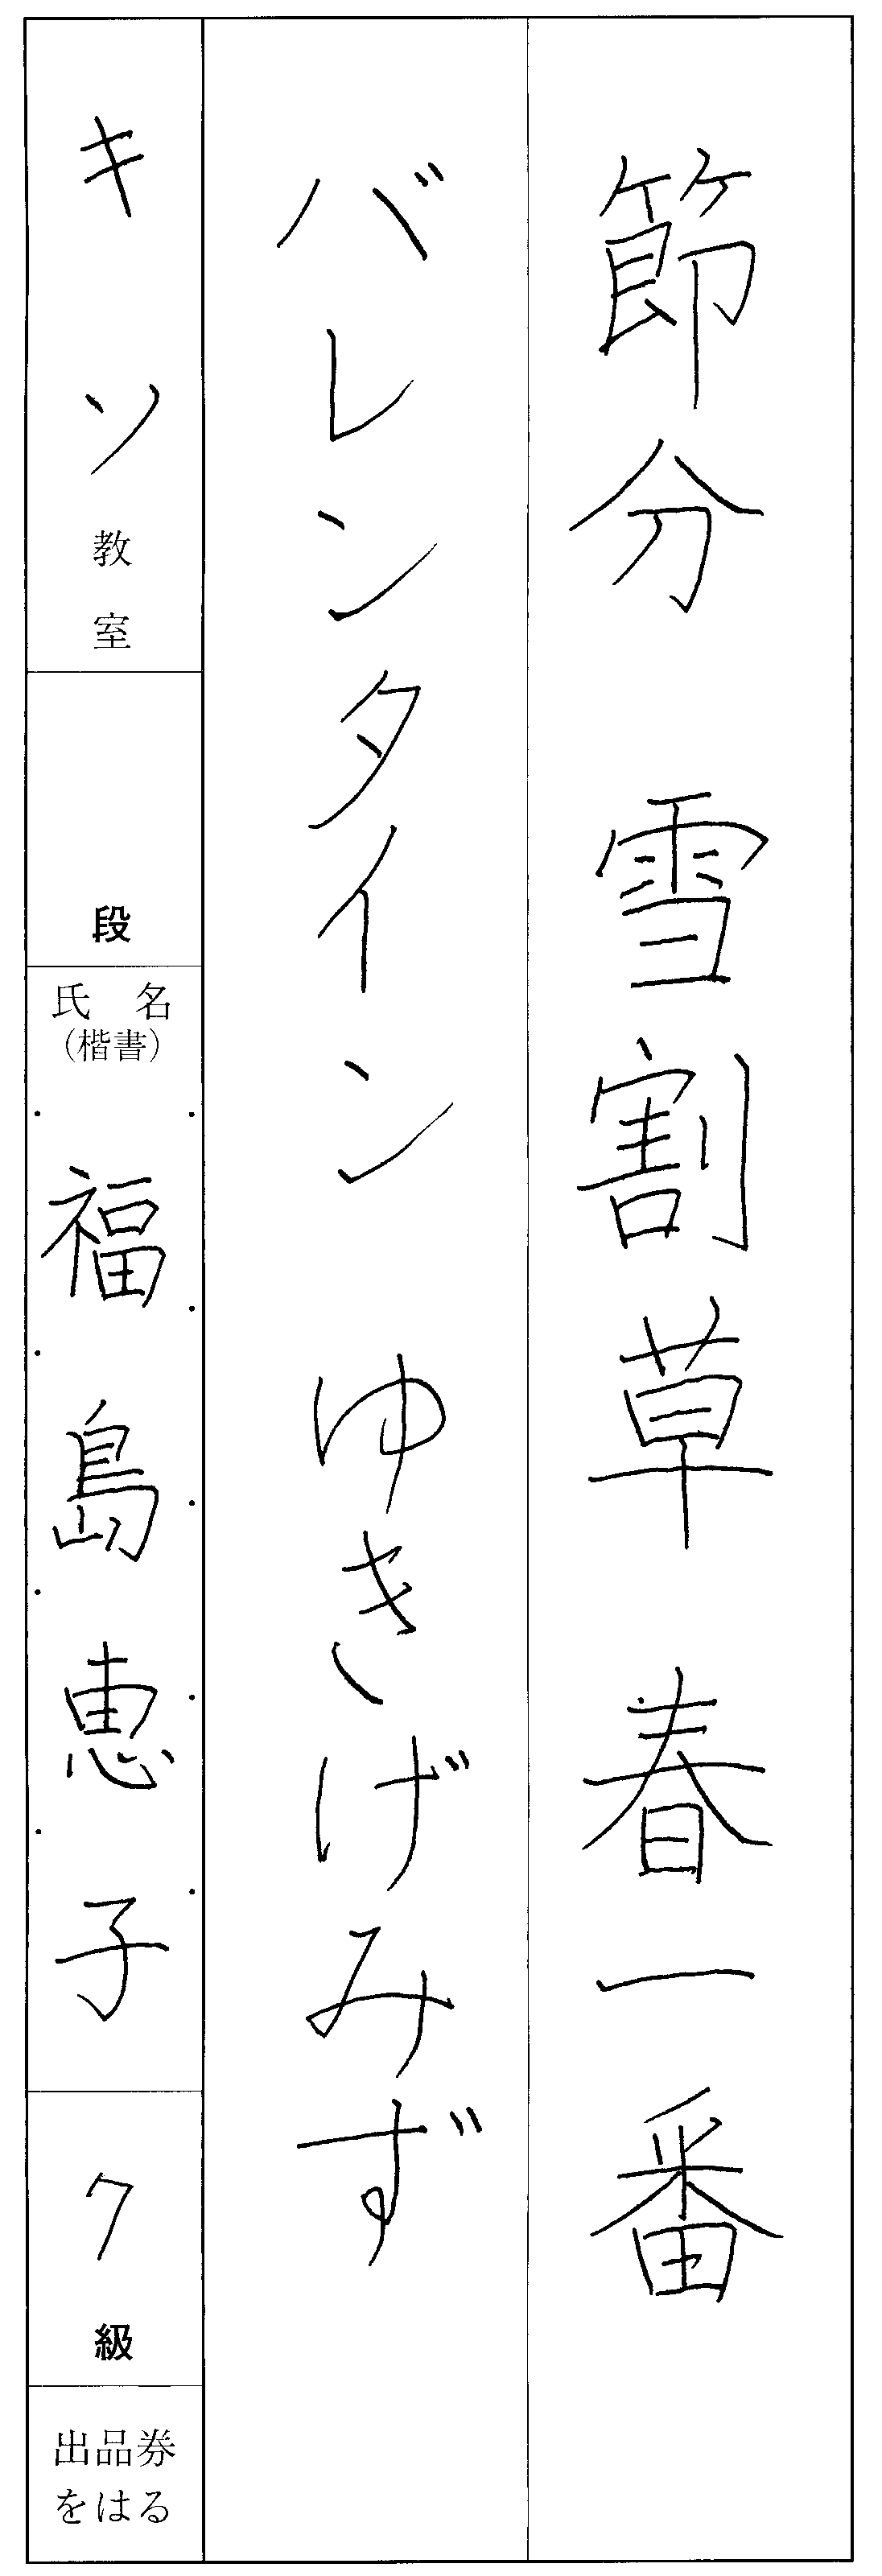 節分 雪割草 春一番
バレンタイン ゆきげみず
キソ教室
段
氏名
(楷書)
福島恵子
7級
出品券
をはる